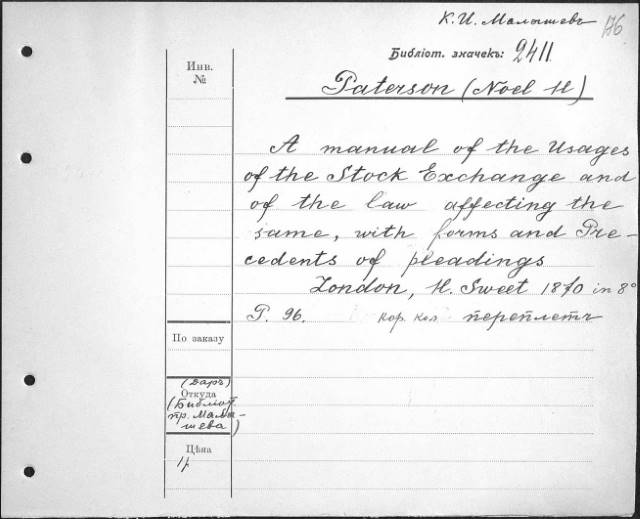 К. И. Малышевъ 176
Библіот. значекъ: 2411
Инв.
№
Paterson (Noel H)
A manual of the Usages
of the Stock Exchange and
of the law affecting the
same, with forms and Pre-
cedents of pleadings
London, H. Sweet 1870 in 8°
P. 96. кор. кол переплетъ
По заказу
(Даръ)
Откуда
(Библіот.
пр. Малы-
шева)
Цѣна